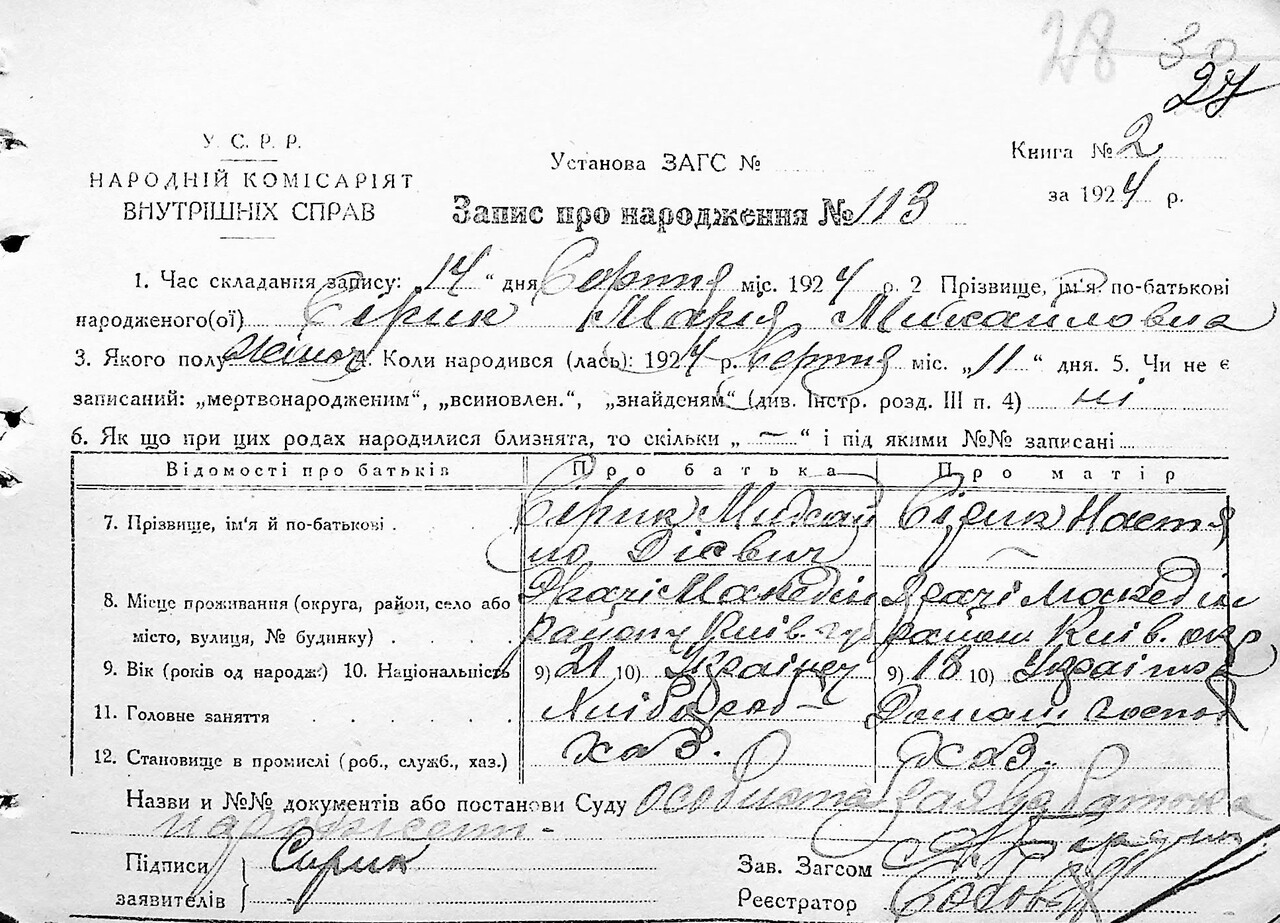 28 30
27
У. С. Р. Р.
НАРОДНІЙ КОМІСАРІЯТ
ВНУТРІШНІХ СПРАВ
Установа ЗАГС №
Книга № 2
за 1924 р.
Запис про народження № 113
1. Час складання запису: „14“ дня Серпня міс. 1924 р. 2 Прізвище, ім'я, по-батькові
народженого(ої) Сірик Марія Михайловна
3. Якого полу жіноч 4. Коли народився (лась): 1924 р. Серпня міс. „11“ дня. 5. Чи не є
записаний: „мертвонародженим“, „всиновлен.“, „знайденям“ (див. Інстр. розд. III п. 4) ні
6. Як що при цих родах народилися близнята, то скільки „ — “ і під якими №№ записані
Відомості про батьків Про батька Про матір
7. Прізвище, ім'я й по-батькові Сірик Михай Сірик Настя
ло
8. Місце проживання (округа, район, село або
місто, вулиця, № будинку) району Київ. район Київ. окр
9. Вік (років од народж.) 10. Національність 9) 21 10) Українец 9) 18 10) Українка
11. Головне заняття Хлібороб Домаш. господ
12. Становище в промислі (роб., служб., хаз.) хаз. хаз.
Назви и №№ документів або постанови Суду особиста заява батька
Підписи Сирик Зав. Загсом
заявителів Реєстратор